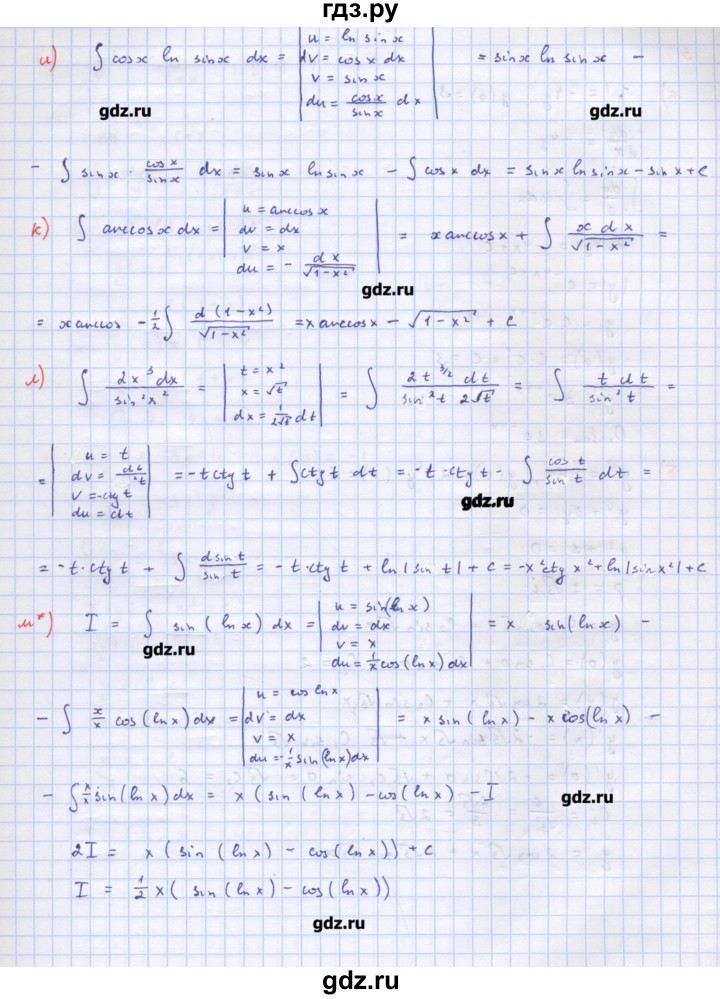 гдз.ру
и) ∫ cosx ln sinx dx = | u = ln sinx
dv = cosx dx
v = sinx
du = cosx/sinx dx | = sinx ln sinx −
gdz.ru
− ∫ sinx · cosx/sinx dx = sinx ln sinx − ∫ cosx dx = sinx ln sinx − sinx + c
к) ∫ arccosx dx = | u = arccosx
dv = dx
v = x
du = − dx/√(1−x²) | = x arccosx + ∫ x dx/√(1−x²) =
gdz.ru
= x arccos − 1/2 ∫ d(1−x²)/√(1−x²) = x arccosx − √(1−x²) + c
л) ∫ 2x³dx/sin²x² = | t = x²
x = √t
dx = 1/(2√t) dt | = ∫ 2t^(3/2) dt/(sin²t 2√t) = ∫ t dt/sin²t =
= | u = t
dv = dt/sin²t
v = −ctg t
du = dt | = −t ctg t + ∫ctg t dt = −t·ctg t − ∫ cos t/sin t dt =
gdz.ru
= −t·ctg t + ∫ dsin t/sin t = −t·ctg t + ln|sin t| + c = −x²ctg x² + ln|sin x²| + c
м*) I = ∫ sin(lnx) dx = | u = sin(lnx)
dv = dx
v = x
du = 1/x cos(lnx)dx | = x sin(lnx) −
gdz.ru
− ∫ x/x cos(lnx)dx = | u = cos lnx
dv = dx
v = x
du = −1/x sin(lnx)dx | = x sin(lnx) − x cos(lnx) −
− ∫ x/x sin(lnx)dx = x(sin(lnx) − cos(lnx) − I
gdz.ru
2I = x(sin(lnx) − cos(lnx)) + c
I = 1/2 x(sin(lnx) − cos(lnx))
gdz.ru
gdz.ru